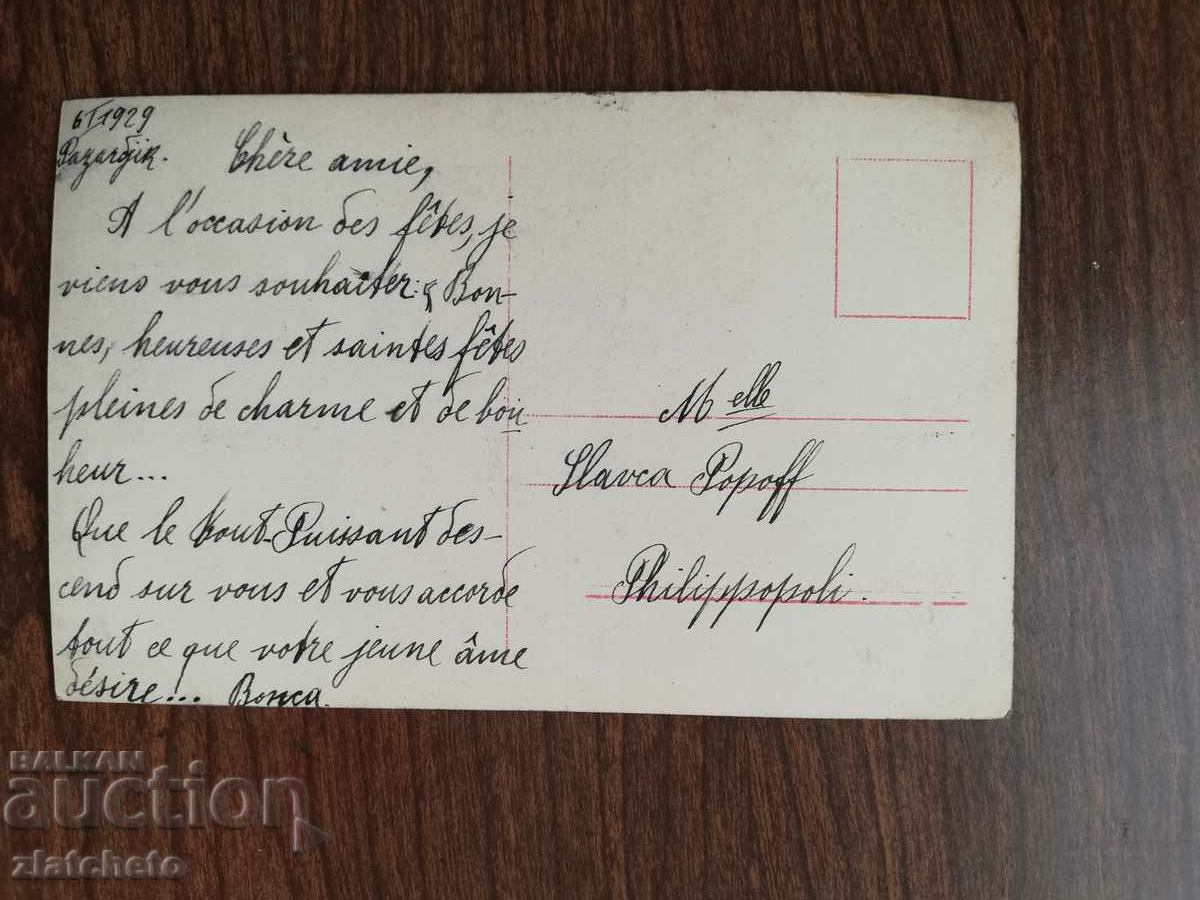 6/I 1929
Pazardjik.
Chère amie,
A l'occasion des fêtes, je
viens vous souhaiter: Bon-
nes, heureuses et saintes fêtes
pleines de charme et de bon
heur...
Que le Tout-Puissant des-
cend sur vous et vous accorde
tout ce que votre jeune âme
désire... Bonca.
Melle
Slavca Popoff
Philippopoli.
BALKAN
auction
zlatcheto